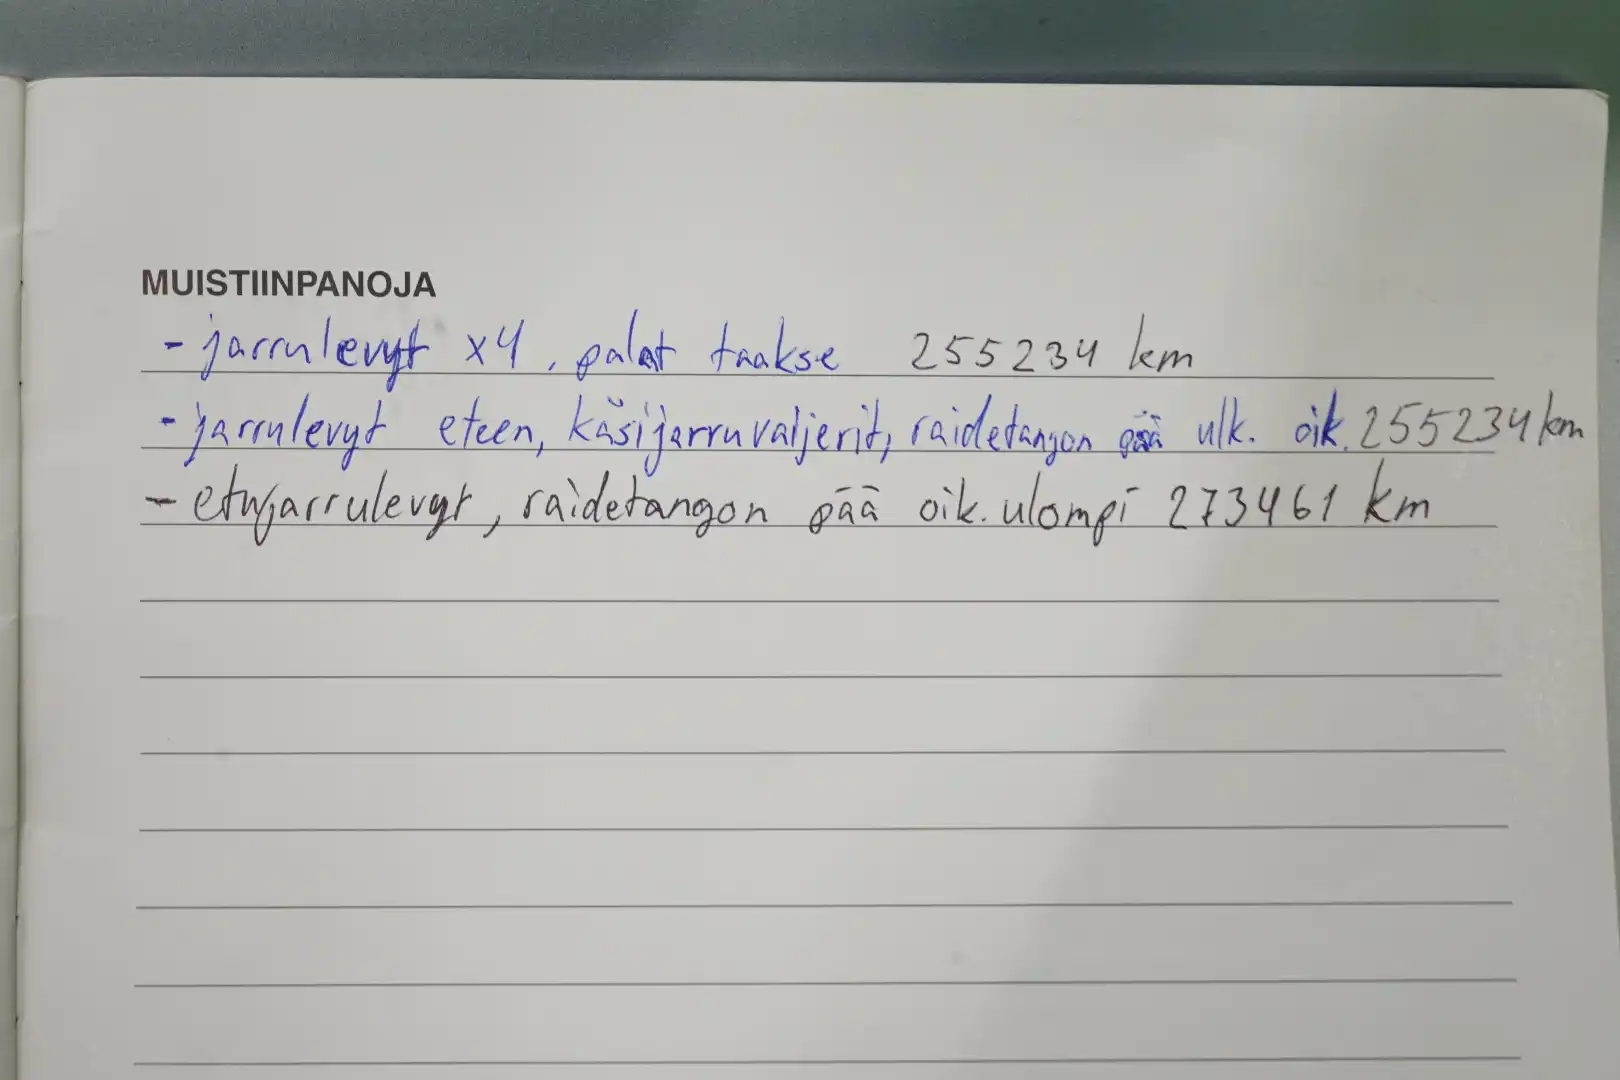 MUISTIINPANOJA
- jarrulevyt x4, palat taakse 255234 km
- jarrulevyt eteen, käsijarruvaijerit, raidetangon pää ulk. oik. 255234 km
- etujarrulevyt, raidetangon pää oik. ulompi 273461 km